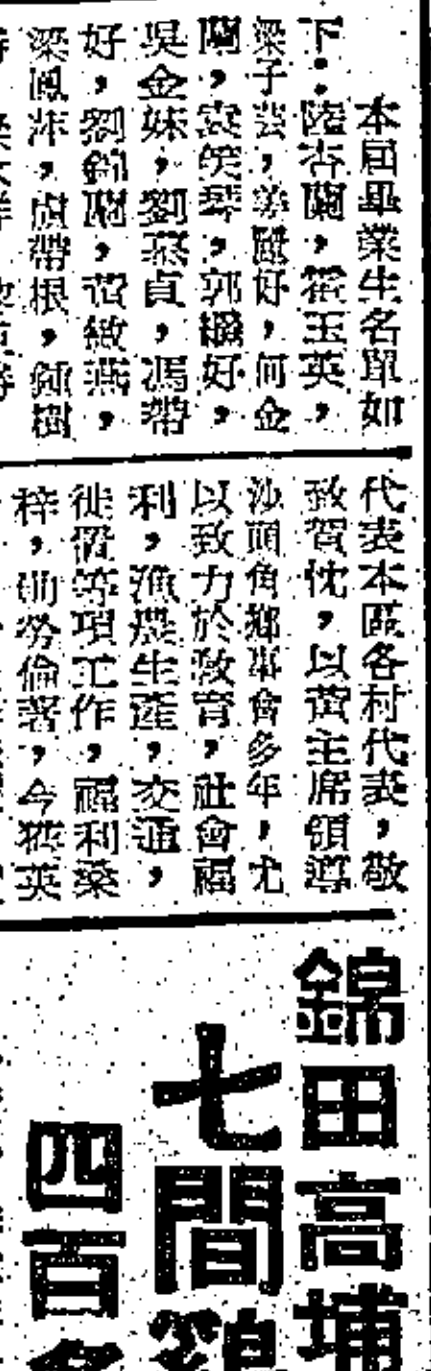 本屆畢業生名單如
下：陸杏蘭，霍玉英，
梁子芸，美好，何金
蘭，袁笑琴，郭好，
吳金妹，劉慕貞，馮帶
好，劉錦關，黃緻燕，
梁鳳萍，盧帶根，鍾樹
代表本區各村代表，敬
致賀忱，以黃主席領導
沙頭角鄉事會多年，尤
以致力於教育，社會福
利，漁農生產，交通，
徙置等項工作，福利桑
梓，勳勞倫著，今獲英
錦田高埔
七間
四百